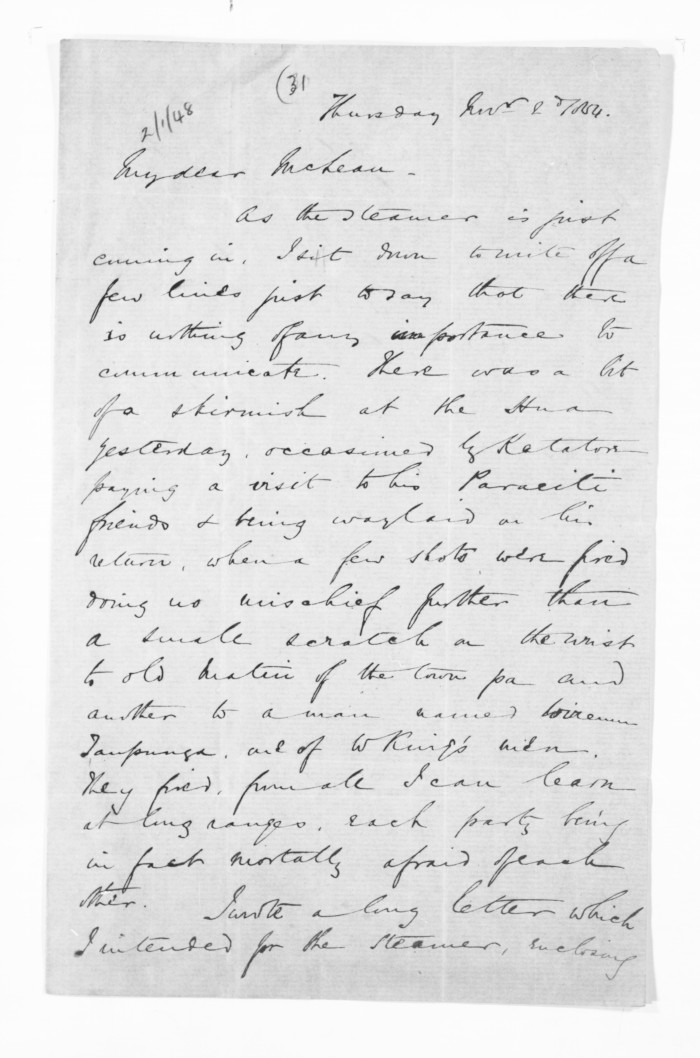 (31
2/1/48
Thursday Novr 2d/1854.
My dear McLean -
As the steamer is just
coming in, I sit down to write off a
few lines just to say that there
is nothing of any importance to
communicate. There was a bit
of a skirmish at the Hua
yesterday, occasioned by Katatore
paying a visit to his Paraciti
friends & being waylaid on his
return, when a few shots were fired
doing no mischief further than
a small scratch on the wrist
to old Matiu of the town pa and
another to a man named Wiremu
, one of W King's men.
They fired, from all I can learn
at long ranges, each party being
in fact mortally afraid of each
other. I wrote a long letter which
I intended for the steamer, enclosing